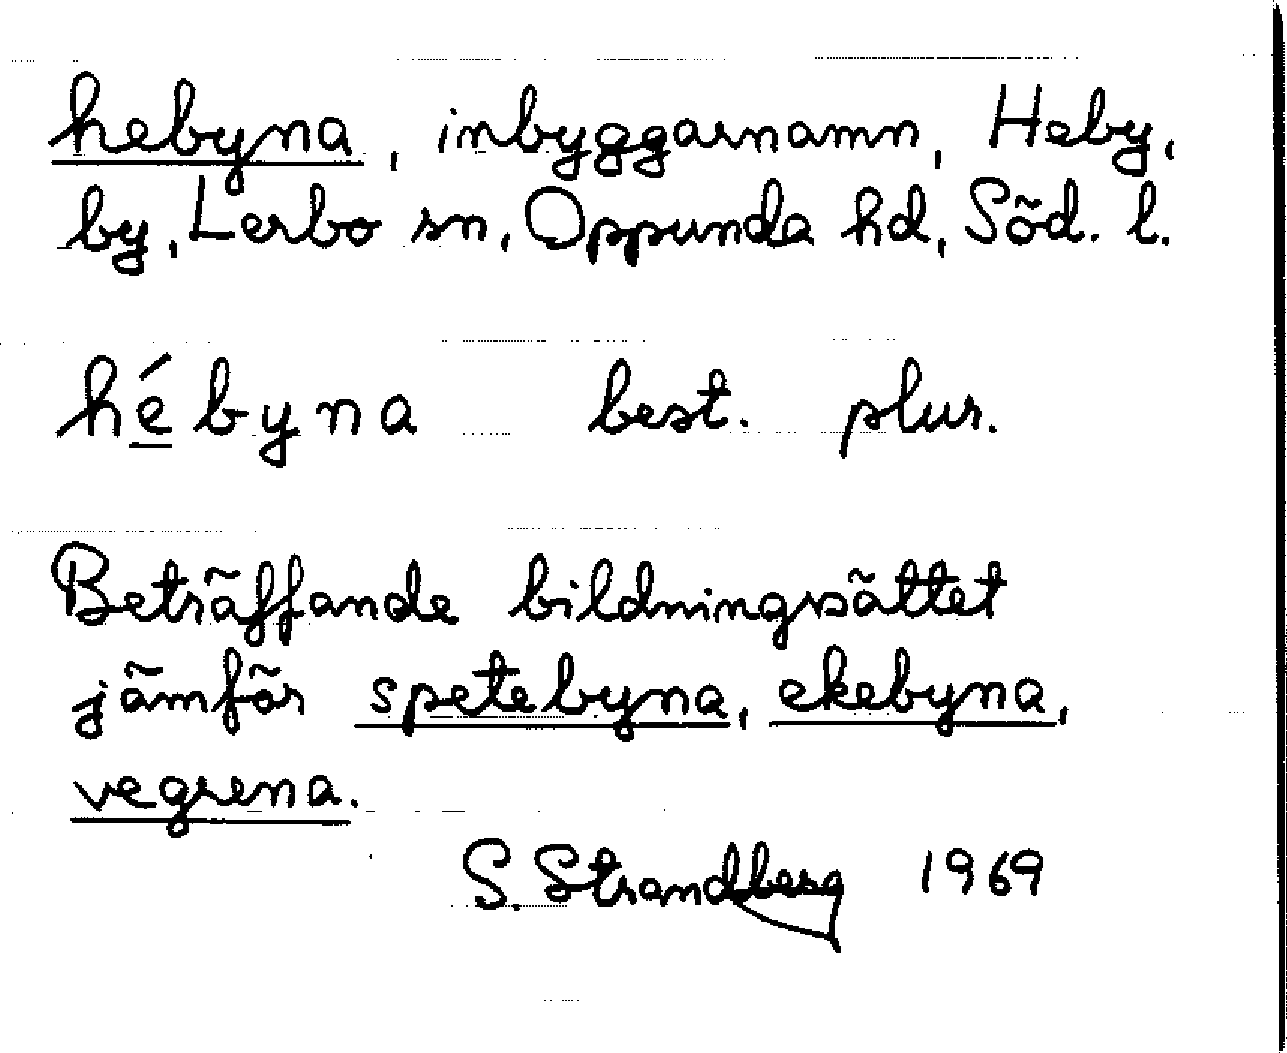 hebyna, inbyggarnamn, Heby,
by, Lerbo sn, Oppunda hd, Söd. l.
hé̱byna best. plur.
Beträffande bildningssättet
jämför spetebyna, ekebyna,
vegrena.
S. Strandberg 1969